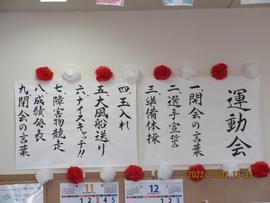 運動会
一、開会の言葉
二、選手宣誓
三、準備体操
四、玉入れ
五、大風船送り
六、ナイスキャッチ!!
七、障害物競走
八、成績発表
九、閉会の言葉
11
12